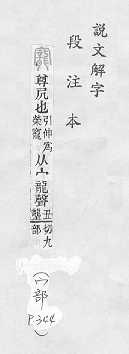 說文解字
段注本
寵 尊凥也引伸爲榮寵从宀龍聲丑切九龔部
(宀部 P344)